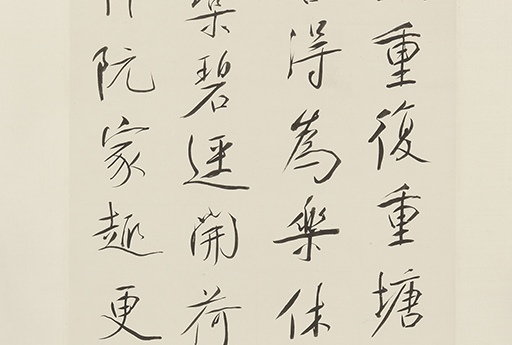 重復重塘
得為樂休
碧逕開荷
阮家趣更